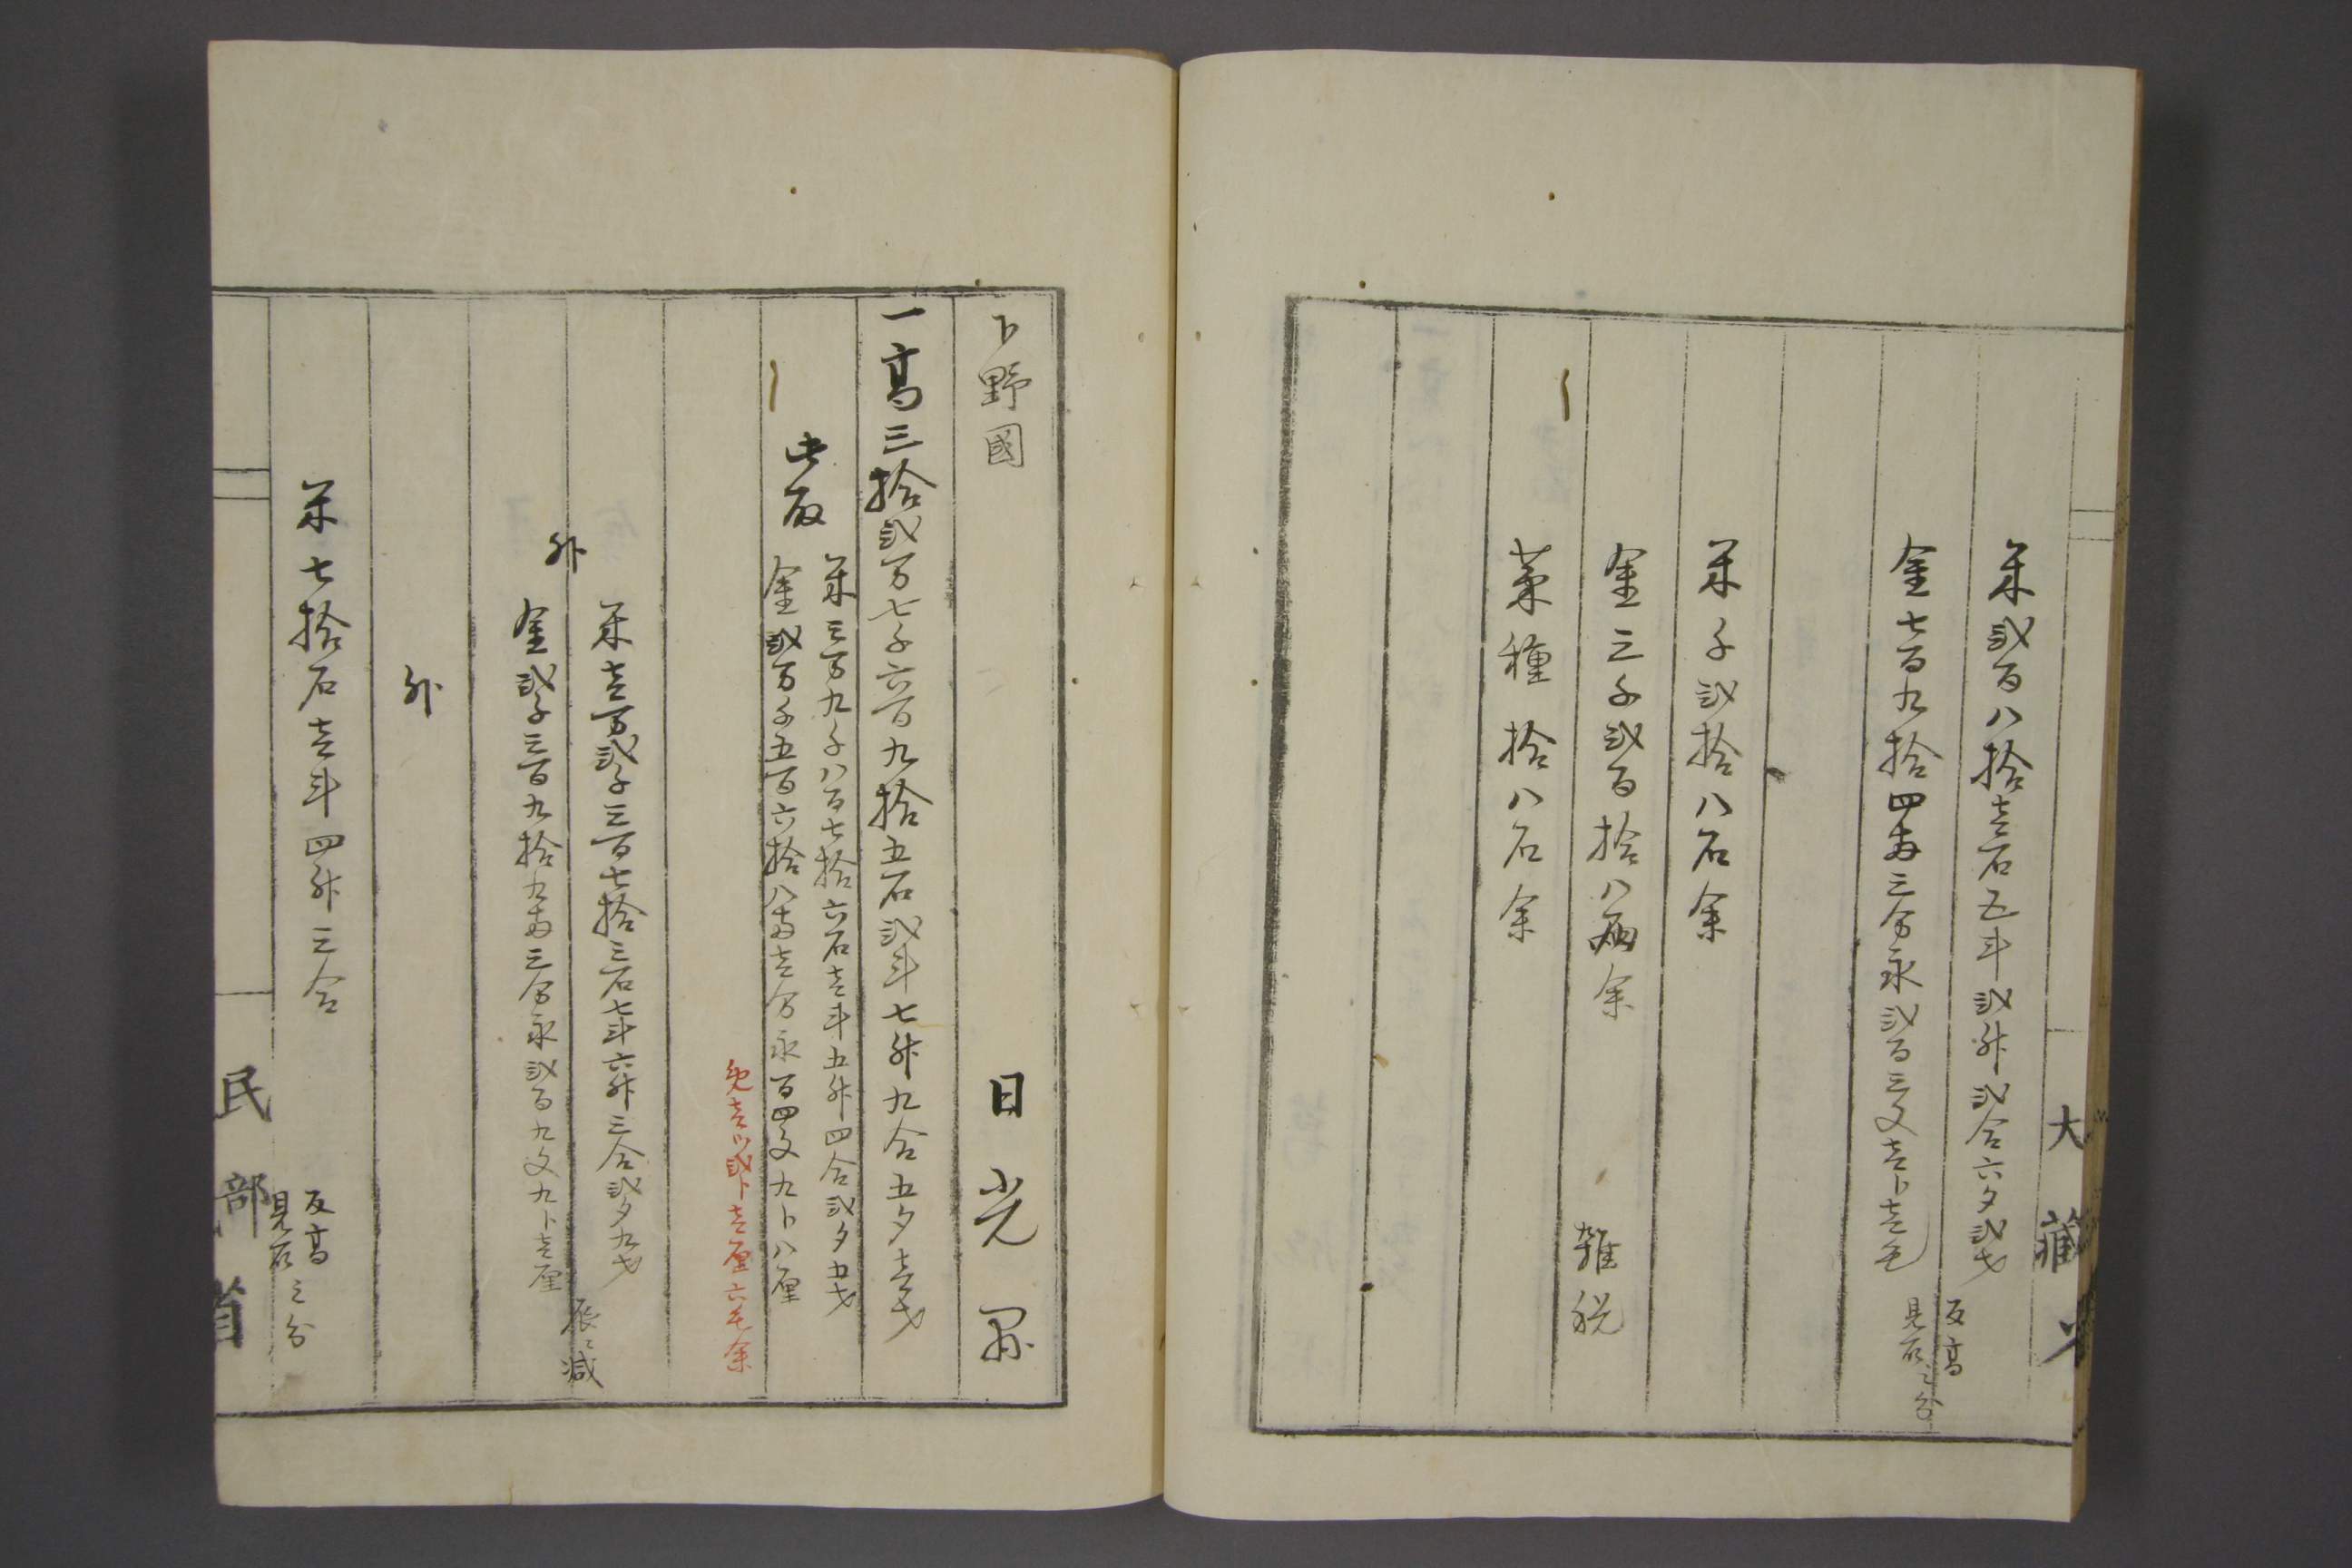 大藏省
米弐百八拾壱石五斗弐升弐合六夕弐才
金七百九拾四両三分永弐百三文壱卜壱毛
反高
見石之分
米千弐拾八石余
金三千弐百拾八両余 雑税
菜種拾八石余
下野國 日光縣
一高三拾弐万七千六百九拾五石弐斗七升九合五夕壱才
此取
米三万九千八百七拾六石壱斗五升四合弐夕五才
金弐万千五百六拾八両壱分永百四文九卜八厘
免壱ツ弐卜壱厘六毛余
外
米壱万弐千三百七拾三石七斗六升三合弐夕九才
金弐千三百九拾九両三分永弐百九文九卜壱厘
辰ゟ減
外
米七拾石壱斗四升三合
反高
見石之分
民部省